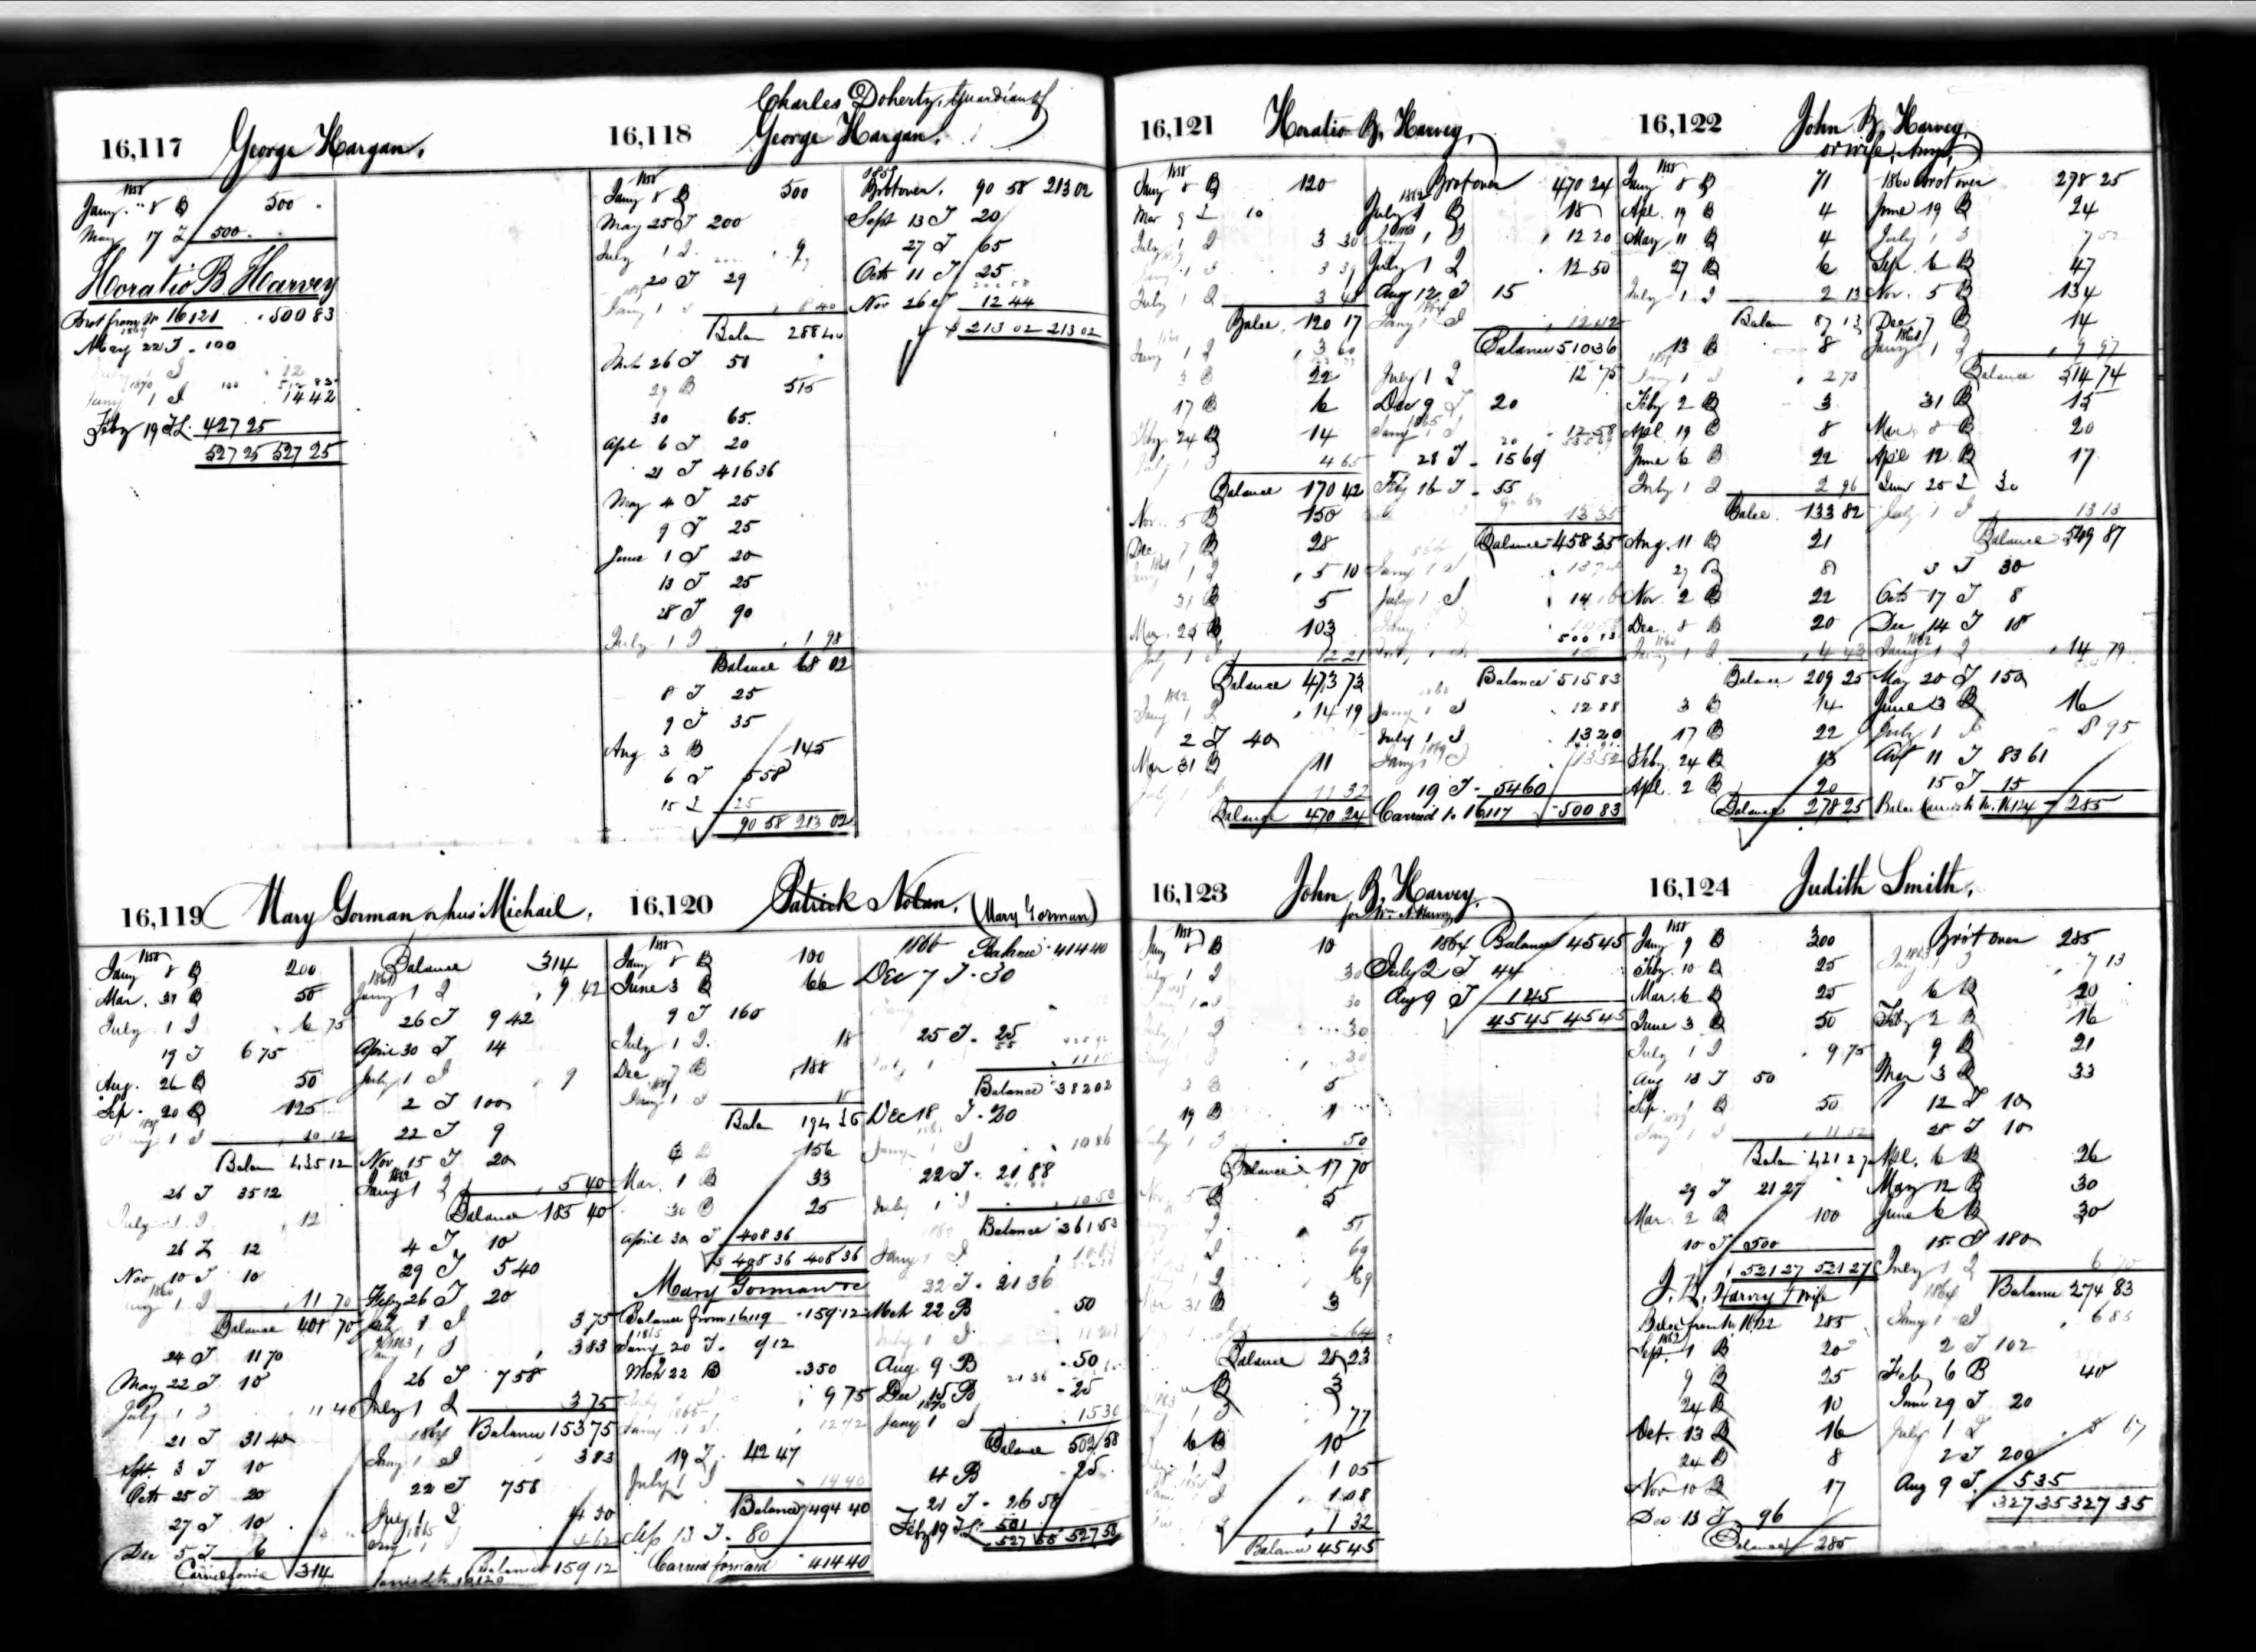 16,117 George Hargan.
1858
Jany. 8 B 500
May 17 J 500
Horatio B. Harvey
Brot from No 16121 500 83
1869
May 22 J 100
12
1870 100 512 83
Jany 1 I 14 42
Feby 19 J L. 427 25
527 25 527 25
16,118 Charles Doherty, Guardian of
George Hargan.
1858
Jany 8 B 500
May 25 J 200
July 1 I 9
20 J 29
Jany 1 I 8 40
Balan 288 40
Mch 26 J 51
29 B 515
30 65.
Apl 6 J 20
21 J 416 36
May 4 J 25
9 J 25
June 1 J 20
13 J 25
28 J 90
July 1 I 1 98
Balance 68 02
8 J 25
9 J 35
Aug 3 B 145
6 J 5 58
15 J 25
90 58 213 02
1859
Brot over. 90 58 213 02
Sept 13 J 20
27 J 65
Octo 11 J 25
Nov 26 J 12 44
$ 213 02 213 02
16,119 Mary Gorman or hus: Michael.
1858
Jany 8 B 200
Mar. 31 B 50
July 1 I 6 75
19 J 6 75
Aug. 26 B 50
Sep. 20 B 125
1859
Jany 1 I 10 12
Balan 435 12
26 J 35 12
July 1 I 12
26 J 12
Nov 10 J 10
1860
Jany 1 I 11 70
Balance 401 70
24 J 11 70
May 22 J 10
July 1 I 11 40
21 J 31 40
Sept. 3 J 10
Octo 25 J 20
27 J 10
Dec 5 J 6
314
Balance 314
1861
Jany 1 I 9 42
26 J 9 42
April 30 J 14
July 1 I 9
2 J 100
22 J 9
Nov 15 J 20
1862
Jany 1 I 5 40
Balance 185 40
4 J 10
29 J 5 40
Feby 26 J 20
July 1 I 3 75
1863
Jany 1 I 3 83
26 J 7 58
July 1 I 3 75
1864 Balance 153 75
Jany 1 I 3 83
22 J 7 58
July 1 I 4 30
1865
Jany 1 4 62
Balance 159 12
Carried to 16120
16,120 Patrick Nolan. (Mary Gorman)
1858
Jany 8 B 100
June 3 B 66
9 J 160
July 1 I 18
Dec 7 B 188
1859
Jany 1 I
Balan 194 36
3 B 156
Mar. 1 B 33
30 B 25
April 30 J 408 36
$ 408 36 408 36
Mary Gorman
Balance from 16119 159 12
1865
Jany 20 J 9 12
Mch 22 B 350
9 75
1866
Jany 1 I 12 72
19 J 42 47
July 1 I 14 40
Balance 494 40
Sep 13 J 80
Carried forward 414 40
1866 Balance 414 40
Dec 7 J 30
25 J 25
Balance 382 02
Dec 18 J 20
Jany 1 I 10 86
22 J 21 88
July 1 I 10 53
Balance 361 53
Jany 1 I
22 J 21 36
Mch 22 B 50
July 1 I
Aug 9 B 50
Dec 15 B 25
1870
Jany 1 I 15 30
Balance 502 58
4 B 25
21 J 26 58
Feby 19 J L 501
527 58 527 58
16,121 Horatio B. Harvey,
1858
Jany 8 B 120
Mar 9 J 10
July 1 I 3 30
Jany 1 I 3 39
July 1 I 3 48
Balce 120 17
1860
Jany 1 I 3 60
3 B 22
17 B 6
Feby. 24 B 14
July 1 I 4 65
Balance 170 42
Nov. 5 B 150
Dec 7 B 28
1861
Jany 1 I 5 10
31 B 5
Mar. 25 B 103
July 1 I 12 21
Balance 473 73
1862
Jany 1 I 14 19
2 J 40
Mar 31 B 11
July 1 I 11 32
Balance 470 24
Brot over 470 24
1862
July 1 B 18
1863
Jany 1 I 12 20
July 1 I 12 50
Aug 12 J 15
1864
Jany 1 I 12 42
Balance 510 36
July 1 I 12 75
Dec 9 J 20
1865
Jany 1 I 12 58
28 J 15 69
Feby 16 J 55
13 35
Balance 458 35
1866
Jany 1 I 13 74
July 1 I 14 16
Jany 1
500 13
Balance 515 83
1868
Jany 1 I 12 88
July 1 I 13 20
1869
Jany 1 I 13 52
19 J 54 60
Carried to 16117 500 83
16,122 John B. Harvey,
or wife, Anna,
1858
Jany 8 B 71
Apl. 19 B 4
May 11 B 4
27 B 6
July 1 I 2 13
Balan 87 13
13 B 8
1859
Jany 1 I 2 73
Feby 2 B 3
Apl 19 B 8
June 6 B 22
July 1 I 2 96
Balce. 133 82
Aug. 11 B 21
27 B 8
Nov. 2 B 22
Dec. 8 B 20
1860
Jany 1 I 4 43
Balance 209 25
3 B 14
17 B 22
Feby. 24 B 13
Apl. 2 B 20
Balance 278 25
1860 Brot over 278 25
June 19 B 24
July 1 I 7 52
Sep. 6 B 47
Nov. 5 B 134
Dec 7 B 14
1861
Jany 1 I 9 97
Balance 514 74
31 B 15
Mar. 8 B 20
Apl 12 B 17
June 25 J 30
July 1 I 13 13
Balance 549 87
3 J 30
Octo 17 J 8
Dec 14 J 18
1862
Jany 1 I 14 79
May 20 J 150
June 3 B 16
July 1 I 8 95
Aug 11 J 83 61
15 J 15
Balce carried to No. 16124 285
16,123 John B. Harvey.
for Wm. N. Harvey,
1858
Jany 8 B 10
July 1 I 30
Jany 1 I 30
July I 30
30
3 B 5
19 B 1
July 1 I 50
Balance 17 70
Nov. 5 B 5
I 51
I 69
I 69
Mar 31 B 3
64
Balance 28 23
B 3
1863
1 I 77
6 B 10
1 I 1 05
I 1 08
I 1 32
Balance 45 45
1864 Balance 45 45
July 2 J 44
Aug 9 J 1 45
45 45 45 45
16,124 Judith Smith,
1858
Jany 9 B 300
Feby. 10 B 25
Mar. 6 B 25
June 3 B 50
July 1 I 9 75
Aug 13 J 50
Sep. 1 B 50
1859
Jany 1 I 11 52
Balan 421 27
29 J 21 27
Mar. 2 B 100
10 J 500
521 27 521 27
J. B. Harvey & wife
Balce from No. 16122 285
1862
Sept. 1 B 20
9 B 25
24 B 10
Oct. 13 B 16
24 B 8
Nov 10 B 17
Dec 13 J 96
Balance 285
Brot over 285
1863
Jany 1 I 7 13
6 B 20
Feby 2 B 16
9 B 21
Mar 3 B 33
12 J 10
28 J 10
Apl. 6 B 26
May 12 B 30
June 6 B 30
15 J 180
July 1 I 6 70
1864 Balance 274 83
Jany 1 I 6 83
2 J 102
Feby 6 B 40
June 29 J 20
July 1 I 5 67
2 J 200
Aug 9 J 5 35
327 35 327 35